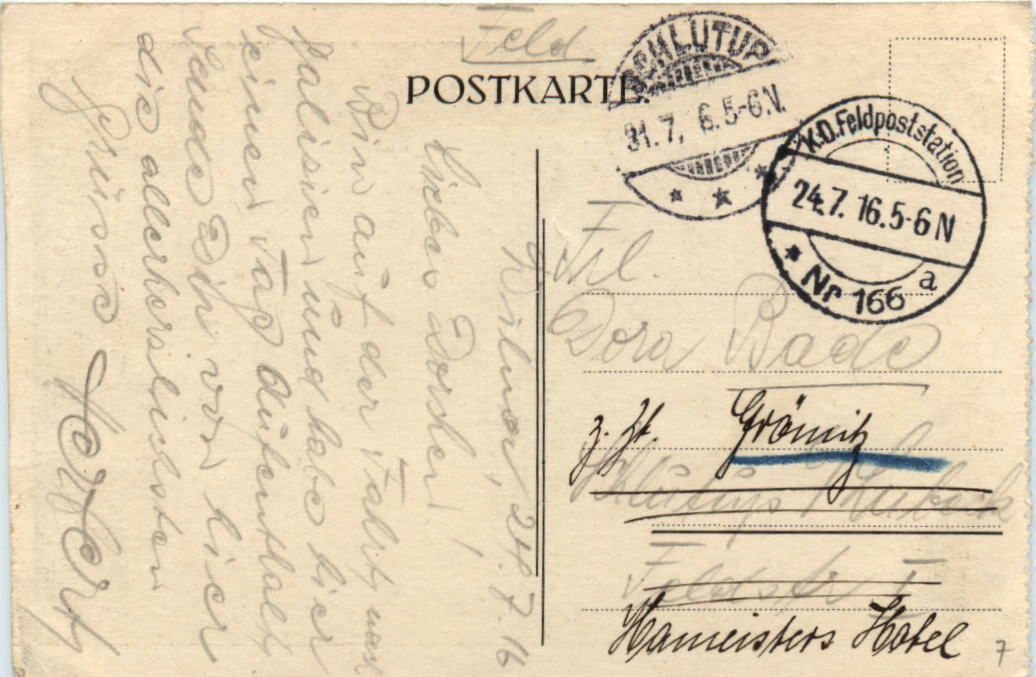 Feld
POSTKARTE.
SCHLUTUP
31.7. 16.5-6N.
K.D.Feldpoststation
24.7. 16.5-6N
Nr 166 a
Wilna, 24.7.16
Liebes Dorchen!
Bin auf der Fahrt nach
Galisien und habe hier
einen Tag Aufenthalt.
Sende Dir von hier
die allerherzlichsten
Grüsse
Frl.
Dora Bade
z. Zt. Grömitz
Schlutup / Lübeck
Feldstr
Hameisters Hotel
7